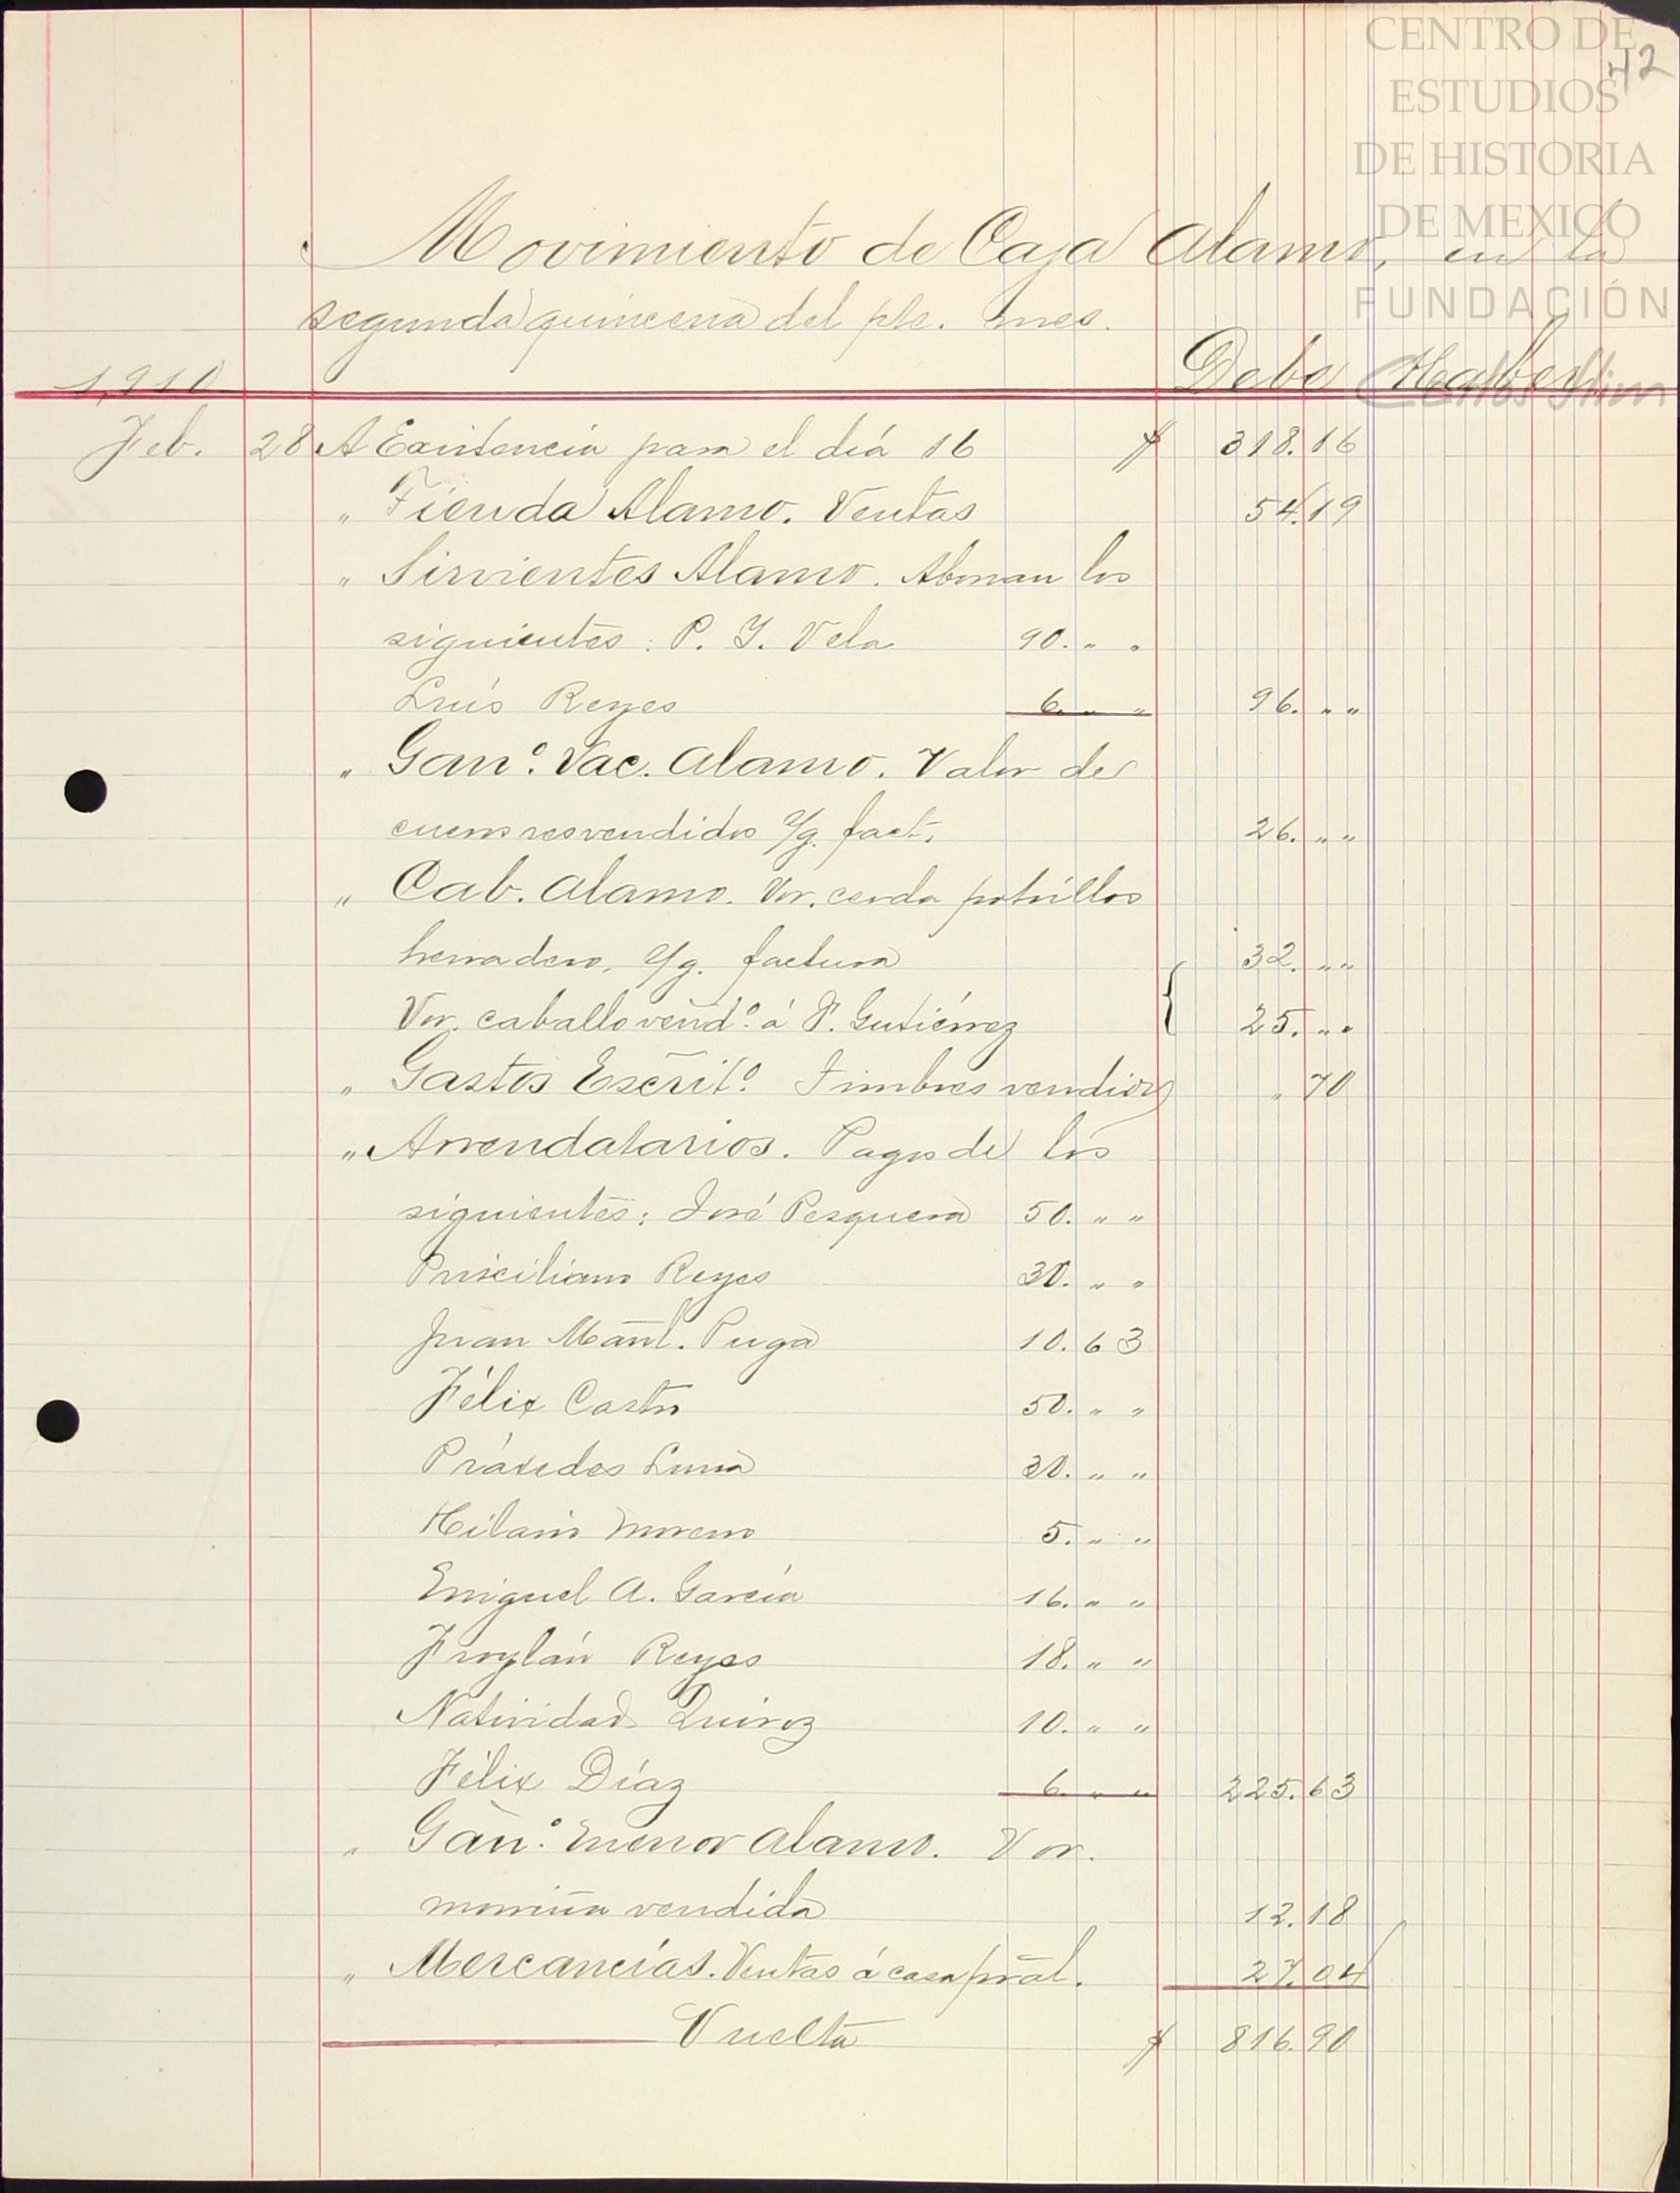 CENTRO DE
ESTUDIOS
DE HISTORIA
DE MEXICO
FUNDACIÓN
Carlos Slim
42
Movimiento de Caja Alamo, en la
segunda quincena del pte. mes.
1,910 Debe Haber
Feb. 28 A Existencia para el día 16 $ 318.16
" Tienda Alamo. Ventas 54.19
" Sirvientes Alamo. Abonan los
siguientes: P. Y. Vela 90. " "
Luis Reyes 6. " " 96. " "
" Gan.º Vac. Alamo. Valor de
cueros res vendidos s/g. fact. 26. " "
" Cab. Alamo. Vor. cerda potrillos
herradero, s/g. factura 32. " "
Vor. caballo vend.º á F. Gutiérrez 25. " "
" Gastos Escrit.º Timbres vendidos " 70
" Arrendatarios. Pagos de los
siguientes: José Pesquera 50. " "
Prisciliano Reyes 30. " "
Juan Manl. Puga 10.63
Félix Castro 50. " "
Práxedes Luna 30. " "
Hilario Moreno 5. " "
Miguel A. García 16. " "
Froylán Reyes 18. " "
Natividad Quiroz 10. " "
Félix Díaz 6. " " 225.63
" Gan.º menor Alamo. Vor.
morriña vendida 12.18
" Mercancías. Ventas á casa pral. 27.04
Vuelta $ 816.90